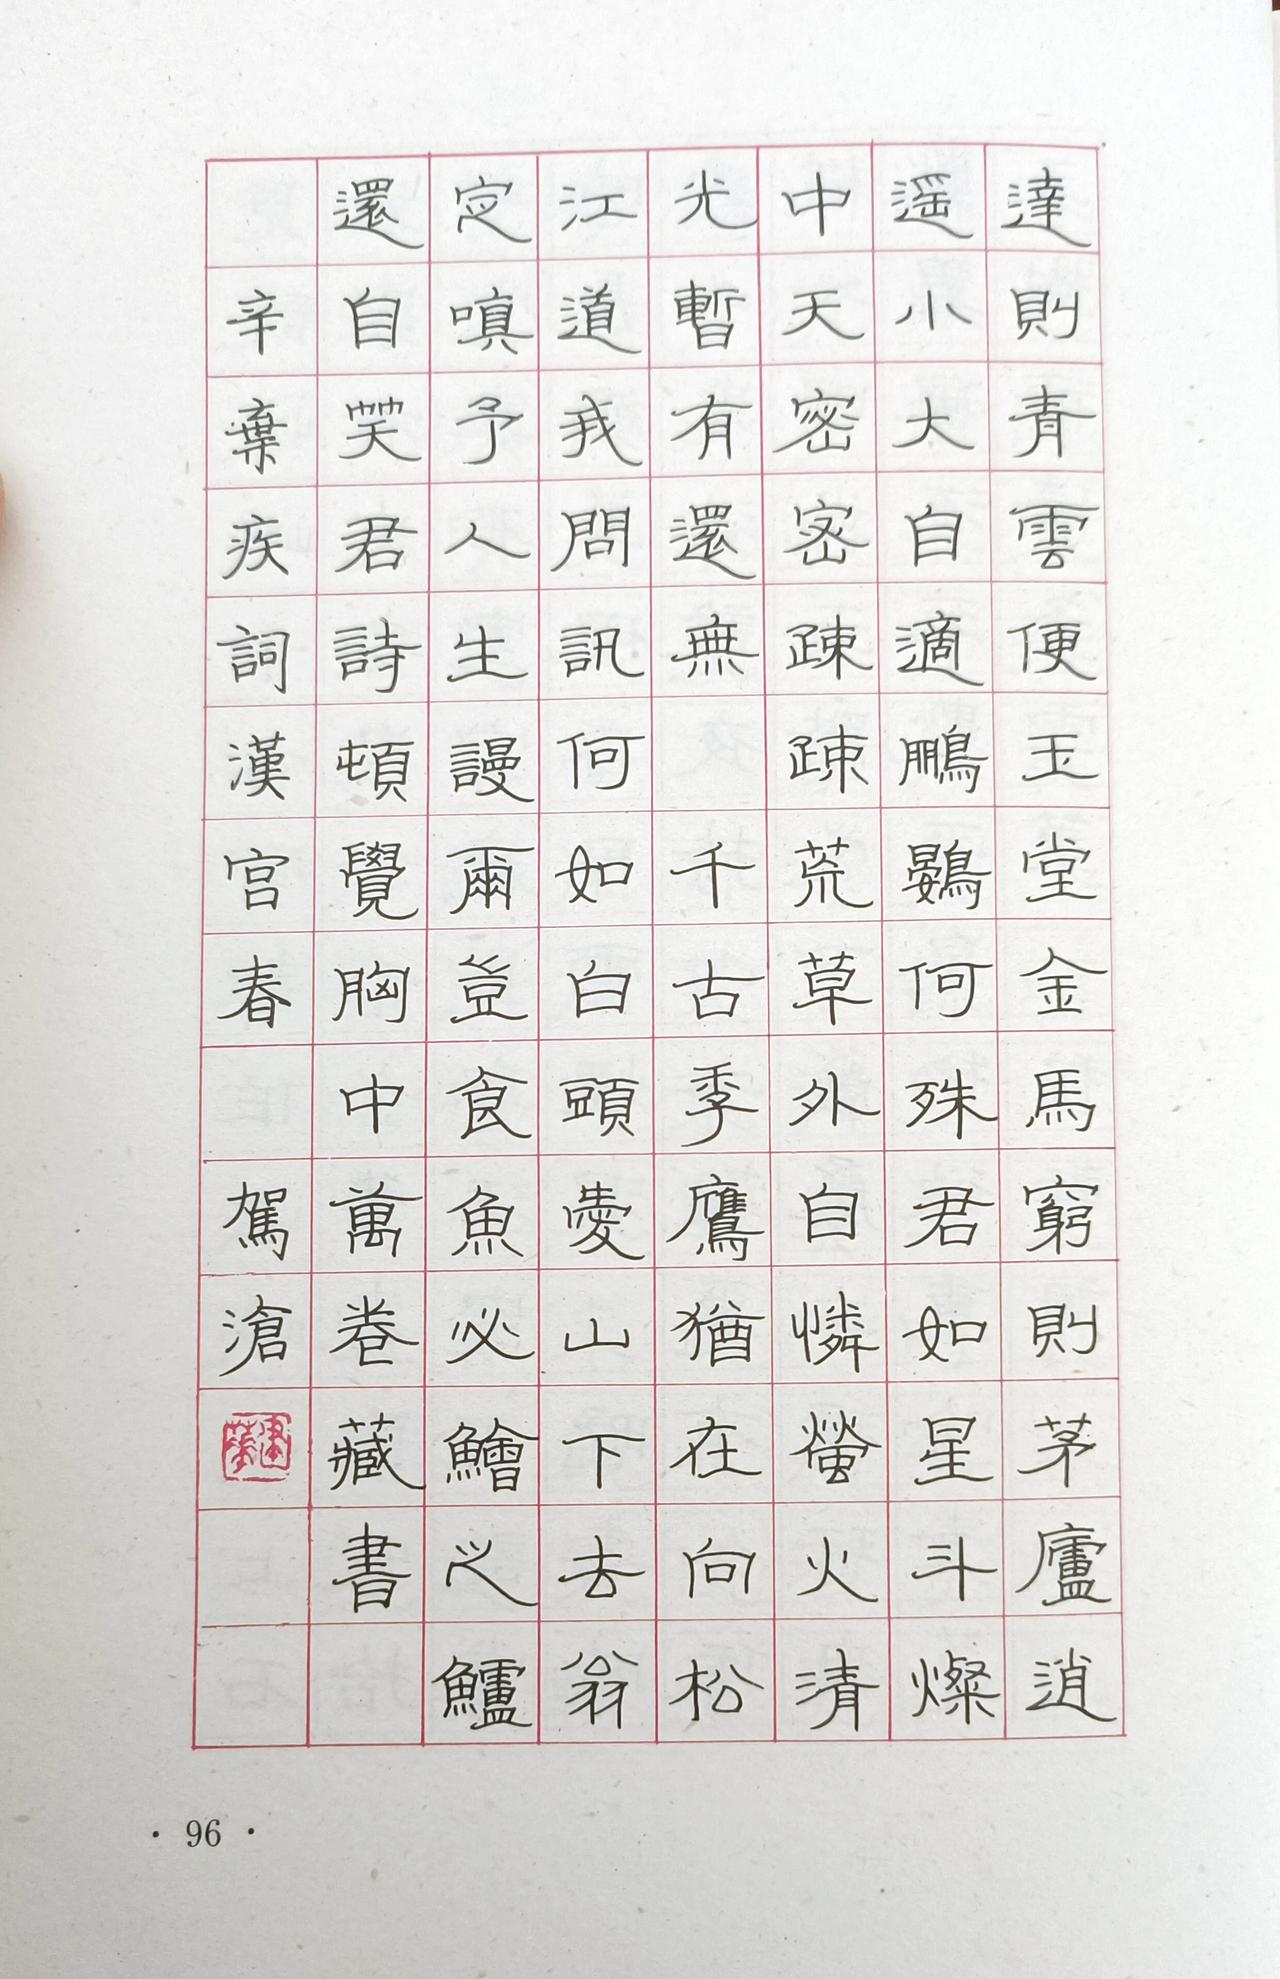 達則青雲便玉堂金馬窮則茅廬逍
遥小大自適鵬鷃何殊君如星斗燦
中天密密疎疎荒草外自憐螢火清
光暫有還無 千古季鷹猶在向松
江道我問訊何如白頭愛山下去翁
定嗔予人生謾爾豈食魚必鱠之鱸
還自笑君詩頓覺胸中萬卷藏書
辛棄疾詞漢宫春 駕滄
· 96 ·